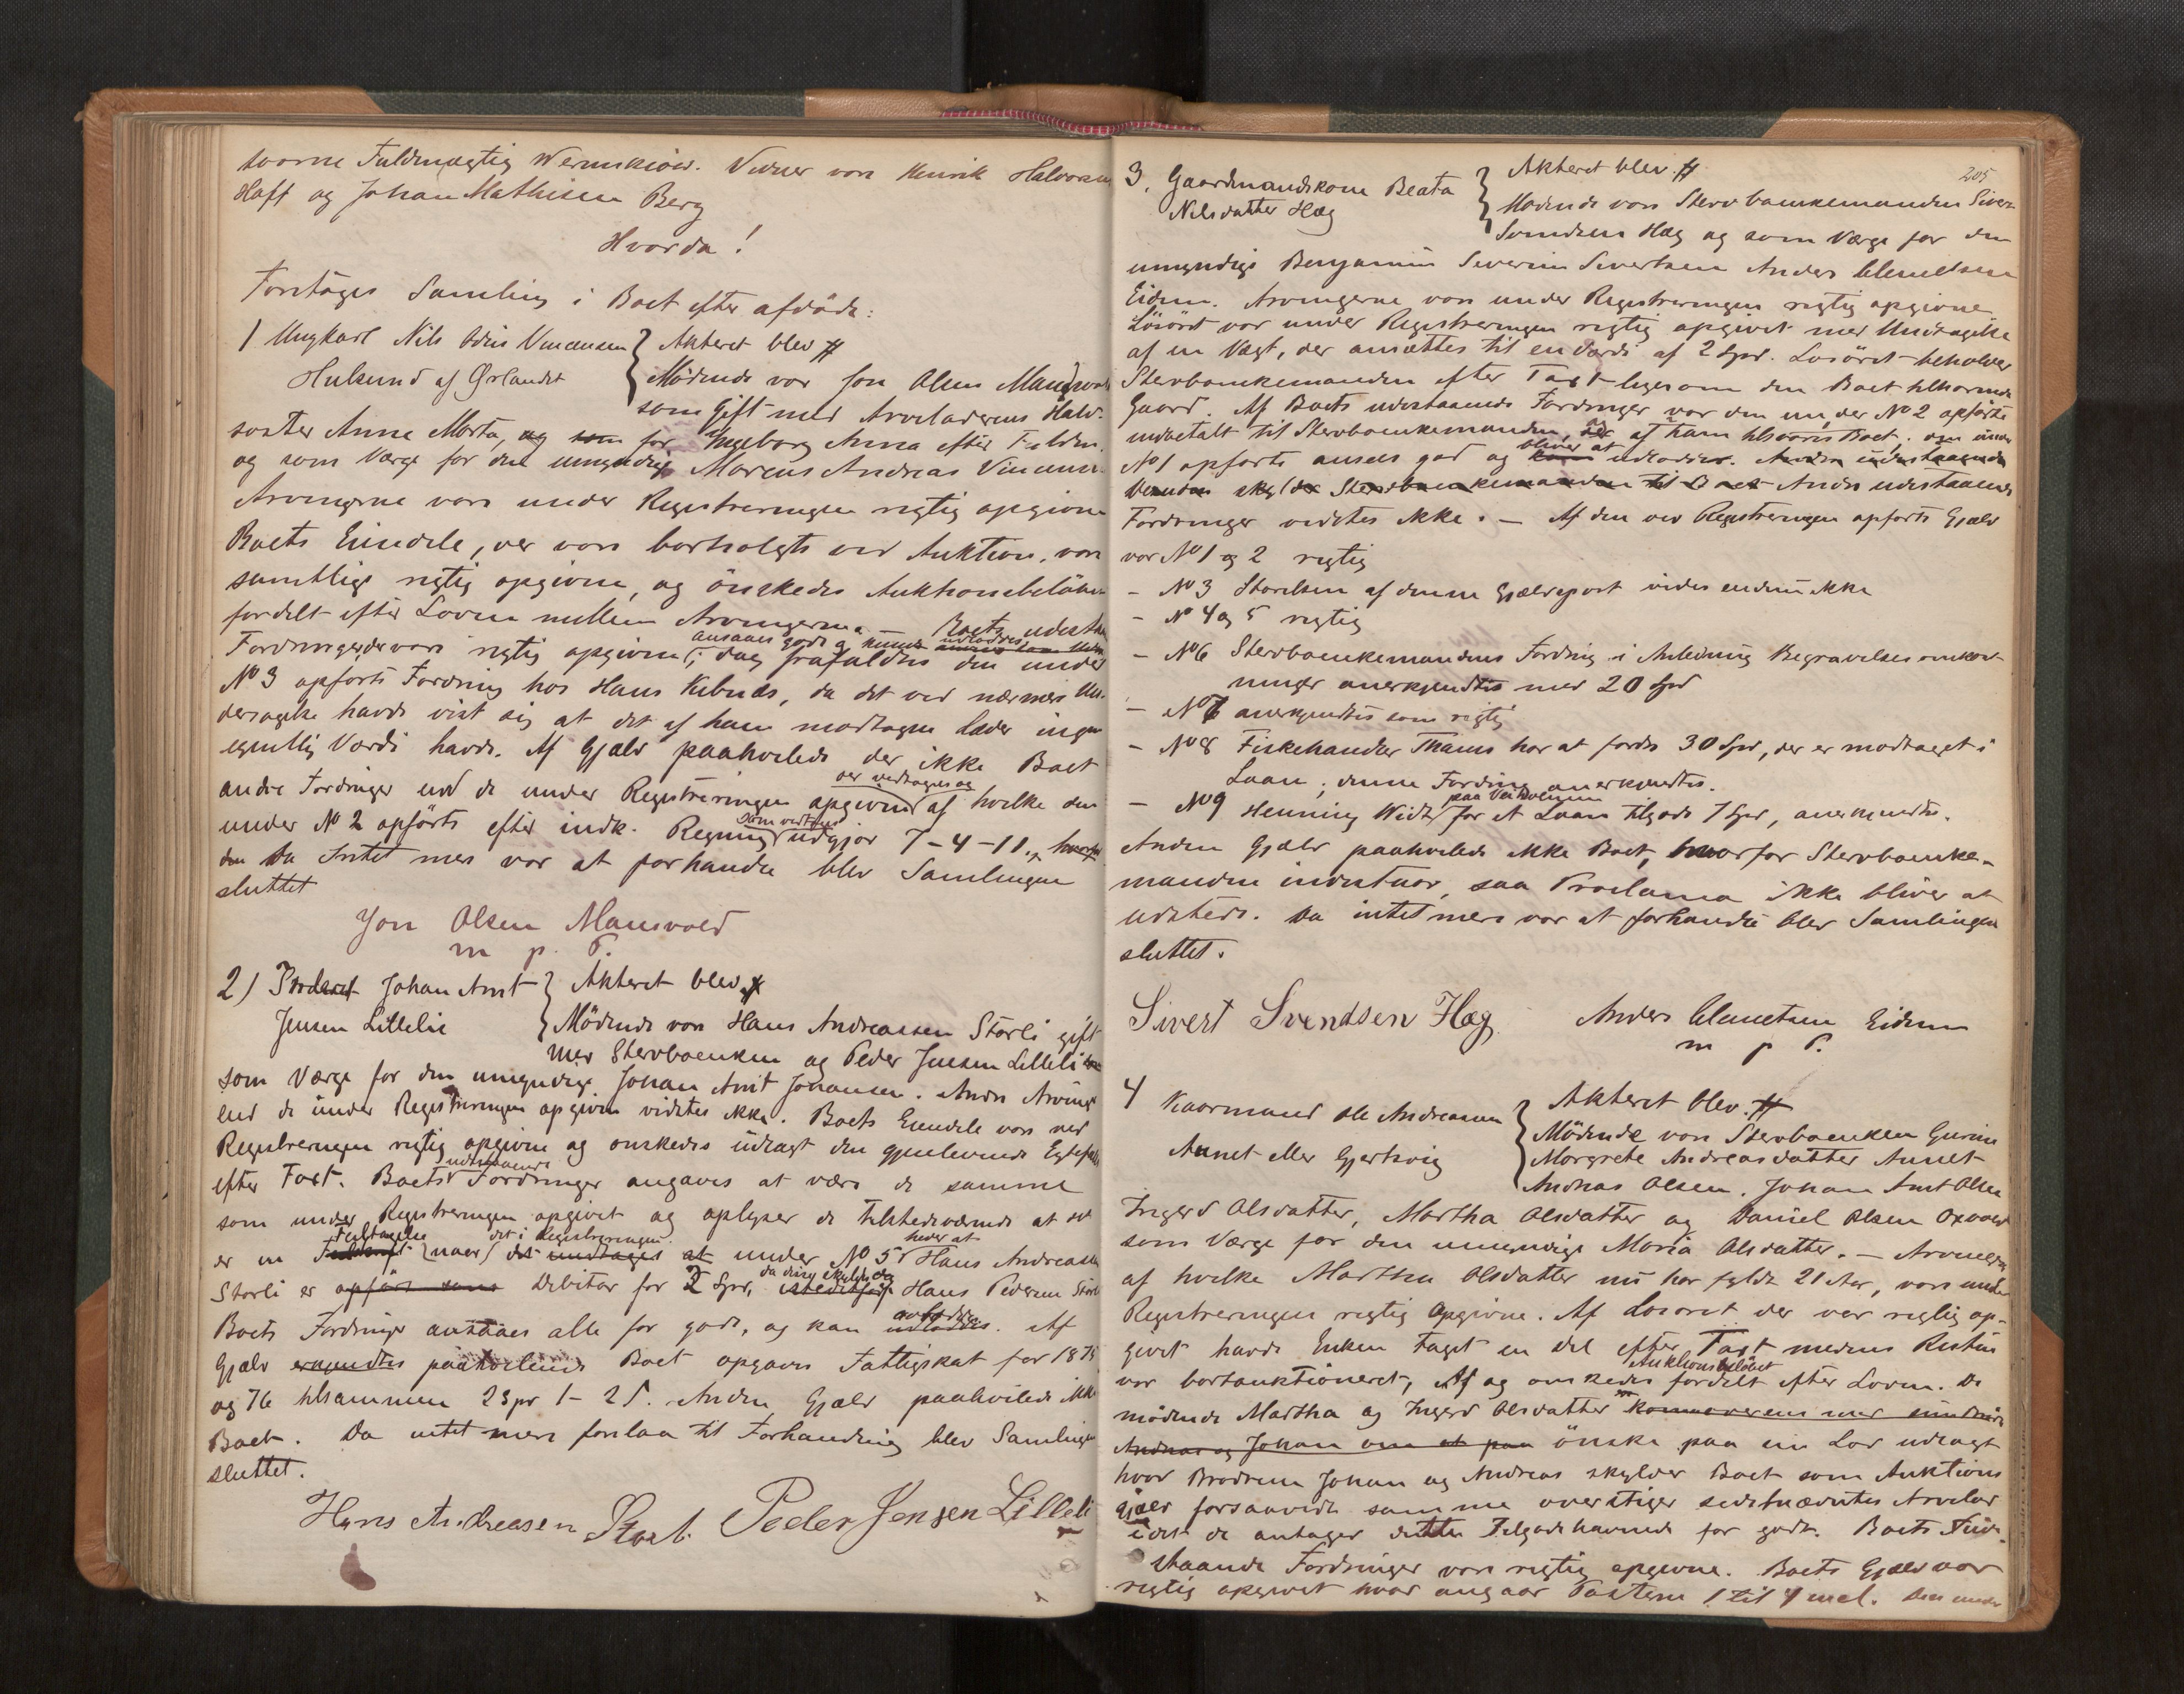 svorne Fuldmægtig Wernskiold. Vidner vare Henrik Halvorsen
Haff og Johan Mathisen Berg
Hvorda!
Foretages Samling i Boet efter afdöde:
1 Ungkarl Nils Odin Vincensen } Akteret blev #
Hulsund af Ørlandet
Mödende var Jon Olsen Mansvold
som gift med Arveladerens Halv-
söster Anne Marta, og som for Ingeborg Anna efter
og som Værge for den umyndige Marcus Andreas Vincensen
Arvingerne vare under Registreringen rigtig opgivne
Boets Eiendele, der vare bortsolgte ved Auktion, vare
samtlige rigtig opgivne, og önskedes Auktionsbelöbet
fordelt efter Loven mellem Arvingerne. — Boets udestaa
ansaaes gode og kunde udloddes
Fordringer der vare rigtig opgivne; dog frafaldtes den under
No 3 opförte Fordring hos Hans , da det ved nærmere Un-
dersögelse havde vist sig at det af ham modtagne Læder ingen
egentlig Værdi havde. Af Gjæld paahvilede der ikke Boet
der vedtages og
andre Fordringer end de under Registreringen opgivne af hvilke den
Som vedtages
under No 2 opförte efter indk. Regning udgjör 7-4-11.
Da Intet mere var at forhandle blev Samlingen
sluttet
Jon Olsen Mansvold
m p. P.
2) Johan Arnt } Akteret blev #
Jensen Lillelie
Mödende vare Hans Andreassen Storli gift
med Stervboenken og Peder Jensen Lilleli
som Værge for den umyndige Johan Arnt Johansen. Andre Arvinger
end de under Registreringen opgivne vidstes ikke. Boets Eiendele vare ved
Registreringen rigtig opgivne og önskedes udlagt den gjenlevende Egtefælle
udestaaende
efter Taxt. Boets Fordringer angaves at være de samme
som under Registreringen opgivet og oplyser de tilstedeværende at det
Feiltagelse det i Registreringen heder at
er en (naar) det undtages at under No 5 Hans Andreassen
da det skylder
Storli er opfört som Debitor for 2 Spd, istedetfor Hans Pedersen Storli
Boets Fordringer ansaaes alle for gode, og kan udloddes. Af
Gjæld erkjendtes paahvilende Boet opgaves Fattigskat for 1875
og 76 tilsammen 2 Spd 1-25. Anden Gjæld paahvilede ikke
Boet. Da intet mere forelaa til Forhandling blev Samlingen
sluttet.
Hans Andreasen Storli Peder Jensen Lilleli
205
3. Gaardmandskone Beata } Akteret blev #
Nilsdatter Hæg
Mödende vare Stervboenkemanden Sivert
Svendsen Hæg og som Værge for den
umyndige Benjamin Severin Sivertsen Anders Clemetsen
Eidem. Arvingerne vare under Registreringen rigtig opgivne.
Lösöret var under Registreringen rigtig opgivet med Undtagelse
af en Vægt, der ansættes til en Værdi af 2 Spd. Lösöret beholder
Stervboenkemanden efter Taxt ligesom den Boet tilhörende
Gaard. Af Boets udestaaende Fordringer var den ene, der No 2 opförte
indbetalt til Stervboenkemanden, og af ham tilsvares Boet. den under
bliver at
No 1 opförte ansees god og udloddes. Anden udestaaende
skylder Stervboenkemanden til Boet Andre udestaaende
Fordringer vidstes ikke. — Af den ved Registreringen opförte Gjæld
var No 1 og 2 rigtig
- No 3 Störrelsen af denne Gjældspost vides endnu ikke
- No 4 og 5 rigtig
- No 6 Stervboenkemandens Fordring i Anledning Begravelsesomkost-
ninger anerkjendtes med 20 Spd
- No 7 anerkjendtes som rigtig
- No 8 Fiskehandler Thams har at fordre 30 Spd, der er modtaget i
Laan; denne Fordring anerkjendtes.
- No 9 Henning Widt for et Laan tilgode 7 Spd, anerkjendtes.
Anden Gjæld paahvilede ikke Boet, hvorfor Stervboenke-
manden indestaar, saa Proclama ikke bliver at
udstede. Da intet mere var at forhandle blev Samlingen
sluttet.
Sivert Svendsen Hæg. Anders Clemetsen Eidem
m p P.
4 Kaarmand Ole Andreassen } Akteret blev #
Aunet eller Gjertsvig
Mödende vare Stervboenken Gurine
Margrete Andreasdatter Aunet
Andreas Olsen, Johan Arnt Olsen
Ingerd Olsdatter, Martha Olsdatter og Daniel Olsen Oxvold
som Værge for den umyndige Maria Olsdatter. — Arvingerne
af hvilke Martha Olsdatter nu har fyldt 21 Aar, vare under
Registreringen rigtig opgivne. Af Lösöret der var rigtig op-
givet havde Enken taget en Del efter Taxt medens Resten
Auktionsbelöbet
var bortauktioneret, og önskedes fordelt efter Loven. De
mödende Martha og Ingerd Olsdatter
Andreas og Johan om at paa önske paa sin Lod udlagt
hvad Brödrene Johan og Andreas skylder Boet som Auktions
gjæld forsaavidt samme overstiger sidstnævntes Arvelod
idet de antager dette Tilgodehavende for godt. Boets Ude-
staaende Fordringer vare rigtig opgivne. Boets Gjæld var
rigtig opgivet hvad angaar Posterne 1 til 4 incl. Den under